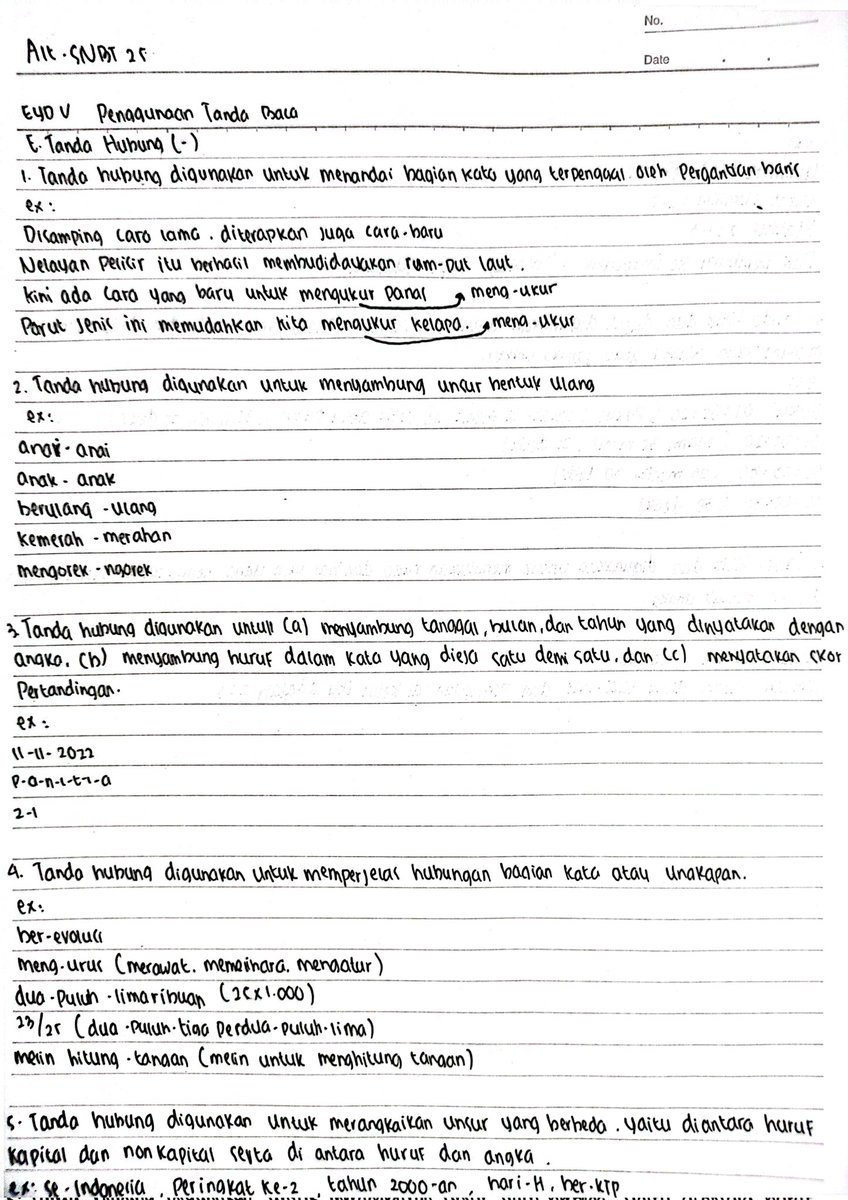 No.
Alt. SNBT 25
Date . .
EYD V Penggunaan Tanda Baca
E. Tanda Hubung (-)
1. Tanda hubung digunakan untuk menandai bagian kata yang terpenggal oleh pergantian baris
ex:
Disamping cara lama, diterapkan juga cara-baru
Nelayan pesisir itu berhasil membudidayakan rum-put laut.
kini ada cara yang baru untuk mengukur panas meng-ukur
Parut jenis ini memudahkan kita mengukur kelapa. meng-ukur
2. Tanda hubung digunakan untuk menyambung unsur bentuk ulang
ex:
anai-anai
anak-anak
berulang-ulang
kemerah-merahan
mengorek-ngorek
3. Tanda hubung digunakan untuk (a) menyambung tanggal, bulan, dan tahun yang dinyatakan dengan
angka, (b) menyambung huruf dalam kata yang dieja satu demi satu, dan (c) menyatakan skor
Pertandingan.
ex:
11-11-2022
P-a-n-i-t-i-a
2-1
4. Tanda hubung digunakan untuk memperjelas hubungan bagian kata atau ungkapan.
ex:
ber-evolusi
meng-urus (merawat, memelihara, mengatur)
dua-puluh-limaribuan (25x1.000)
23/25 (dua-puluh-tiga perdua-puluh-lima)
mesin hitung-tangan (mesin untuk menghitung tangan)
5. Tanda hubung digunakan untuk merangkaikan unsur yang berbeda, yaitu diantara huruf
kapital dan nonkapital serta di antara huruf dan angka.
ex: se-Indonesia, Peringkat ke-2, tahun 2000-an, hari-H, ber-KTP